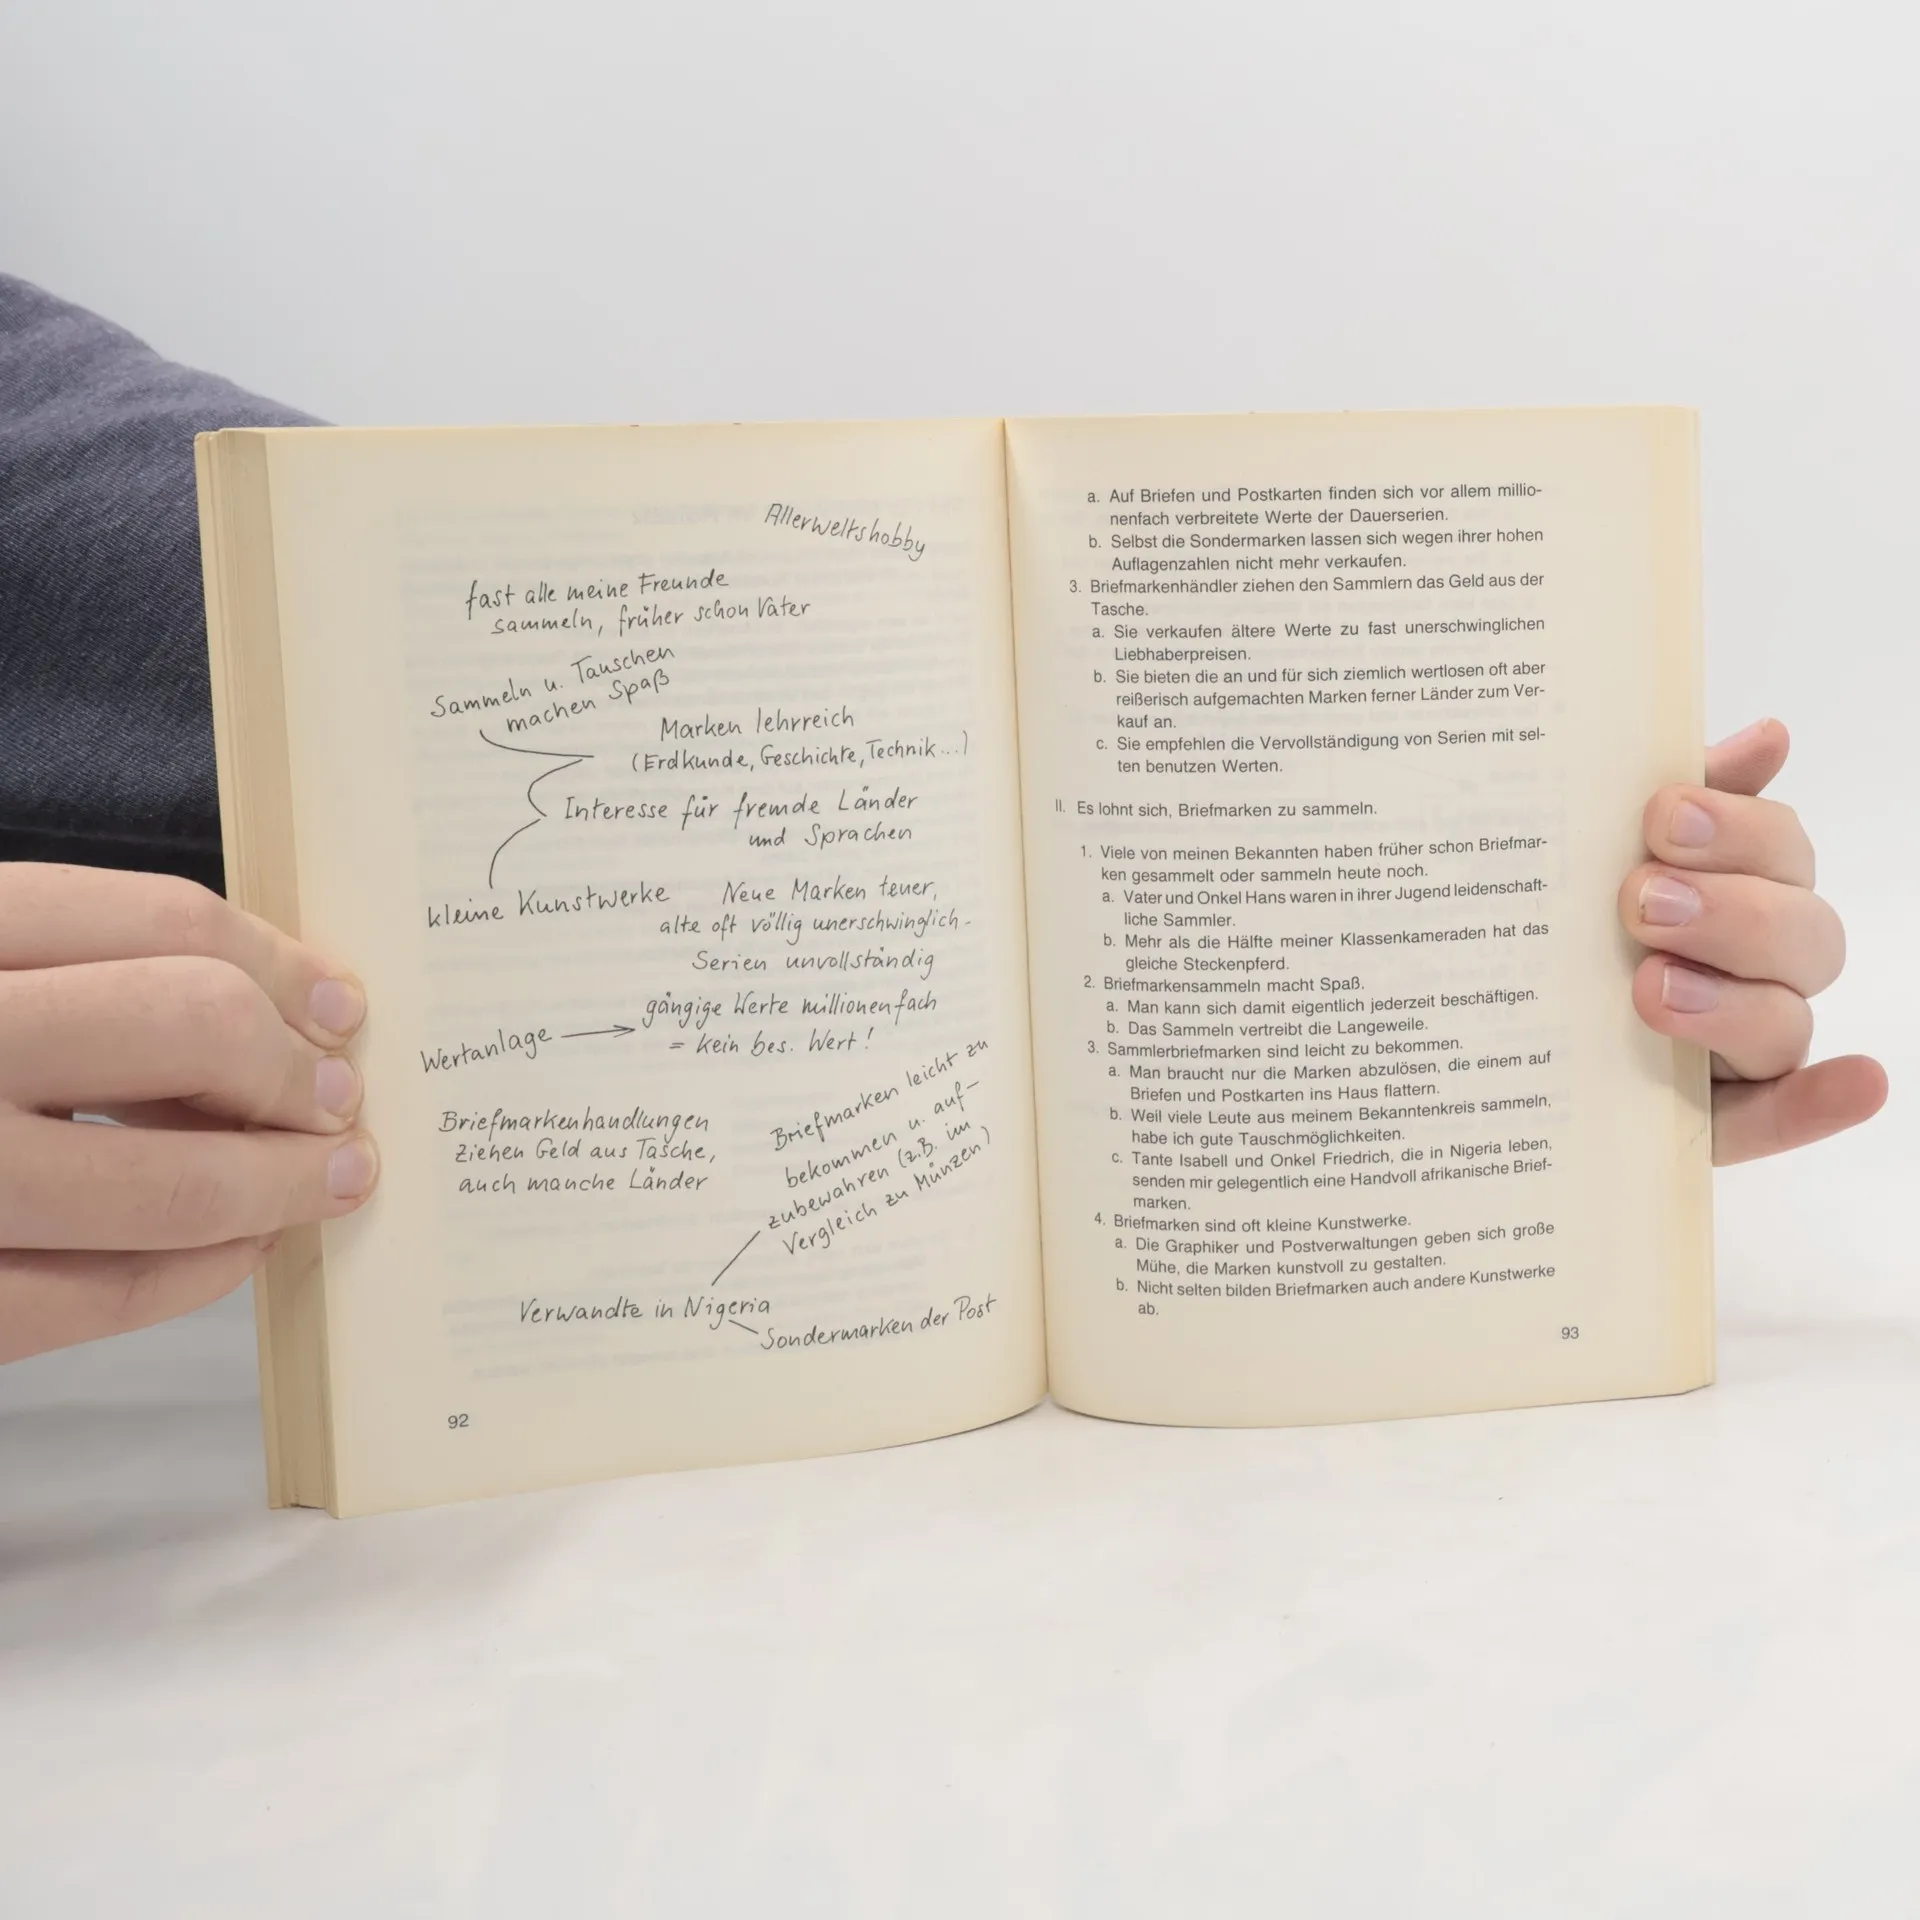 Allerweltshobby
fast alle meine Freunde
sammeln, früher schon Vater
Sammeln u. Tauschen
machen Spaß
Marken lehrreich
(Erdkunde, Geschichte, Technik...)
Interesse für fremde Länder
und Sprachen
kleine Kunstwerke
Neue Marken teuer,
alte oft völlig unerschwinglich -
Serien unvollständig
gängige Werte millionenfach
= kein bes. Wert!
Wertanlage
Briefmarkenhandlungen
ziehen Geld aus Tasche,
auch manche Länder
Briefmarken leicht zu
bekommen u. auf-
zubewahren (z.B. im
Vergleich zu Münzen)
Verwandte in Nigeria
Sondermarken der Post
92
a. Auf Briefen und Postkarten finden sich vor allem millio-
nenfach verbreitete Werte der Dauerserien.
b. Selbst die Sondermarken lassen sich wegen ihrer hohen
Auflagenzahlen nicht mehr verkaufen.
3. Briefmarkenhändler ziehen den Sammlern das Geld aus der
Tasche.
a. Sie verkaufen ältere Werte zu fast unerschwinglichen
Liebhaberpreisen.
b. Sie bieten die an und für sich ziemlich wertlosen oft aber
reißerisch aufgemachten Marken ferner Länder zum Ver-
kauf an.
c. Sie empfehlen die Vervollständigung von Serien mit sel-
ten benutzen Werten.
II. Es lohnt sich, Briefmarken zu sammeln.
1. Viele von meinen Bekannten haben früher schon Briefmar-
ken gesammelt oder sammeln heute noch.
a. Vater und Onkel Hans waren in ihrer Jugend leidenschaft-
liche Sammler.
b. Mehr als die Hälfte meiner Klassenkameraden hat das
gleiche Steckenpferd.
2. Briefmarkensammeln macht Spaß.
a. Man kann sich damit eigentlich jederzeit beschäftigen.
b. Das Sammeln vertreibt die Langeweile.
3. Sammlerbriefmarken sind leicht zu bekommen.
a. Man braucht nur die Marken abzulösen, die einem auf
Briefen und Postkarten ins Haus flattern.
b. Weil viele Leute aus meinem Bekanntenkreis sammeln,
habe ich gute Tauschmöglichkeiten.
c. Tante Isabell und Onkel Friedrich, die in Nigeria leben,
senden mir gelegentlich eine Handvoll afrikanische Brief-
marken.
4. Briefmarken sind oft kleine Kunstwerke.
a. Die Graphiker und Postverwaltungen geben sich große
Mühe, die Marken kunstvoll zu gestalten.
b. Nicht selten bilden Briefmarken auch andere Kunstwerke
ab.
93